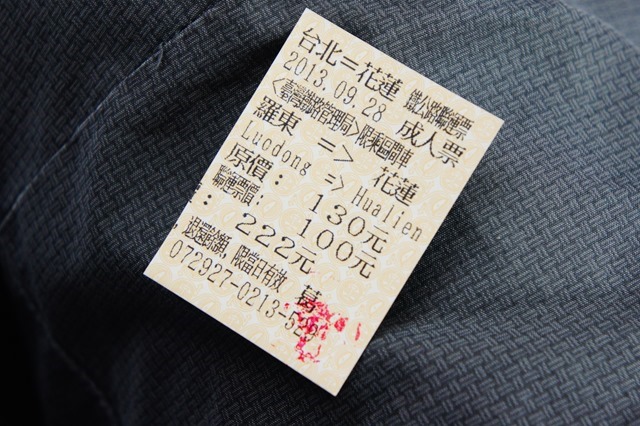 台北=花蓮 鐵公路聯運票
2013.09.28 成人票
<臺灣鐵路管理局>限乘區間車
羅東 => 花蓮
Luodong => Hualien
原價: 130元
聯運票價: 100元
: 222元
限當日有效 葛
072927-0213-52